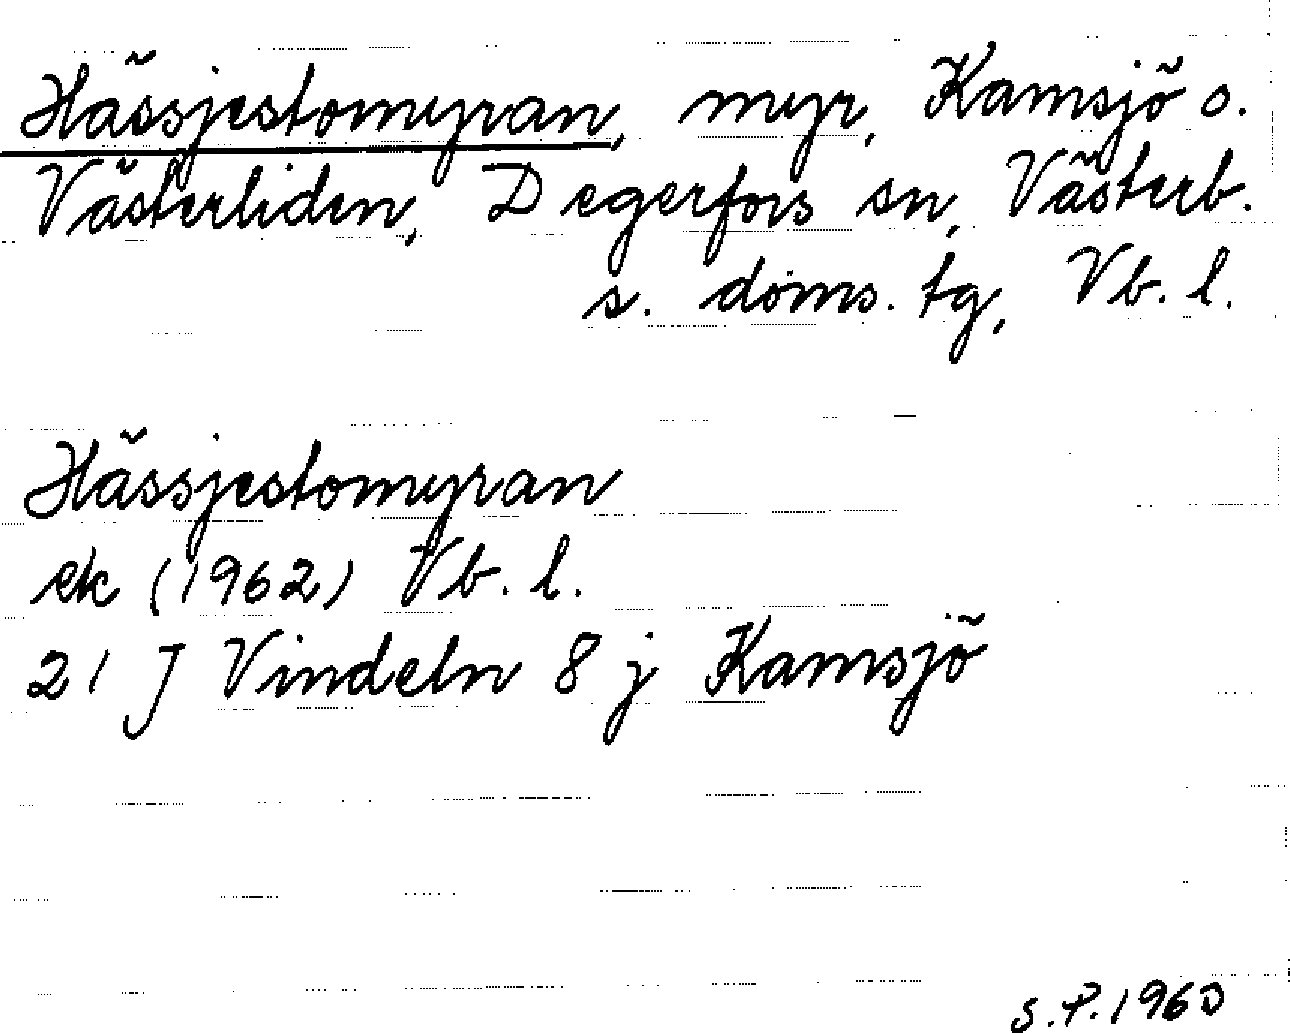 Hässjestomyran, myr, Kamsjö o.
Västerliden, Degerfors sn, Västerb.
s. doms. tg, Vb. l.
Hässjestomyran
ek (1962) Vb. l.
21 J Vindeln 8 j Kamsjö
S.P. 1960